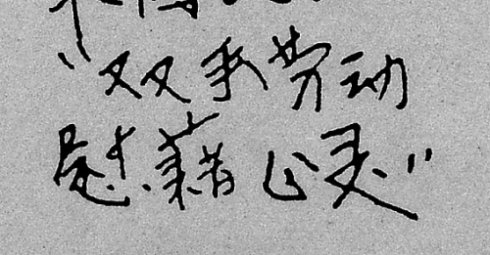 “双手劳动
慰藉心灵”